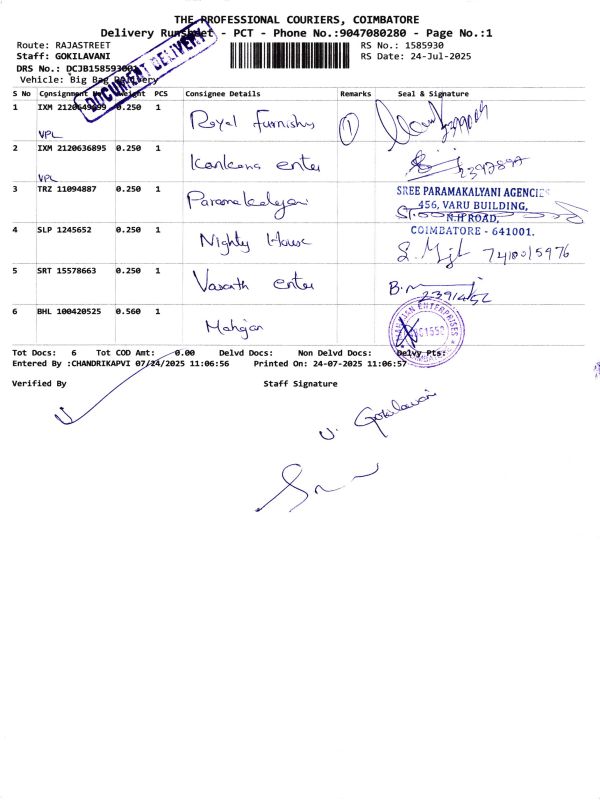 THE PROFESSIONAL COURIERS, COIMBATORE
Delivery Runsheet - PCT - Phone No.:9047080280 - Page No.:1
Route: RAJASTREET RS No.: 1585930
Staff: GOKILAVANI RS Date: 24-Jul-2025
DRS No.: DCJB158593001
Vehicle: Big Bag Delivery
DOCUMENT DELIVERY
S No Consignment No Weight PCS Consignee Details Remarks Seal & Signature
1 IXM 2120649099 0.250 1 Royal furnishys 1
VPL
2 IXM 2120636895 0.250 1 Kankana enter 2397897
VPL
3 TRZ 11094887 0.250 1 Paramakalyani
SREE PARAMAKALYANI AGENCIES
456, VARU BUILDING,
N.H ROAD,
COIMBATORE - 641001.
4 SLP 1245652 0.250 1 Nighty House 7410015976
5 SRT 15578663 0.250 1 Vasanth enter 2391452
6 BHL 100420525 0.560 1 Mahajan
ENTERPRISES
Tot Docs: 6 Tot COD Amt: 0.00 Delvd Docs: Non Delvd Docs: Delvy Pts:
Entered By :CHANDRIKAPVI 07/24/2025 11:06:56 Printed On: 24-07-2025 11:06:57
Verified By Staff Signature
V. Gokilavani